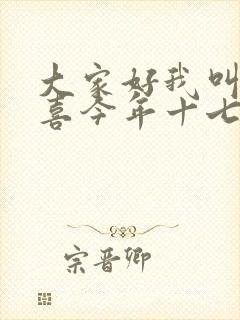 大家好我叫
喜今年十七
宗晋卿